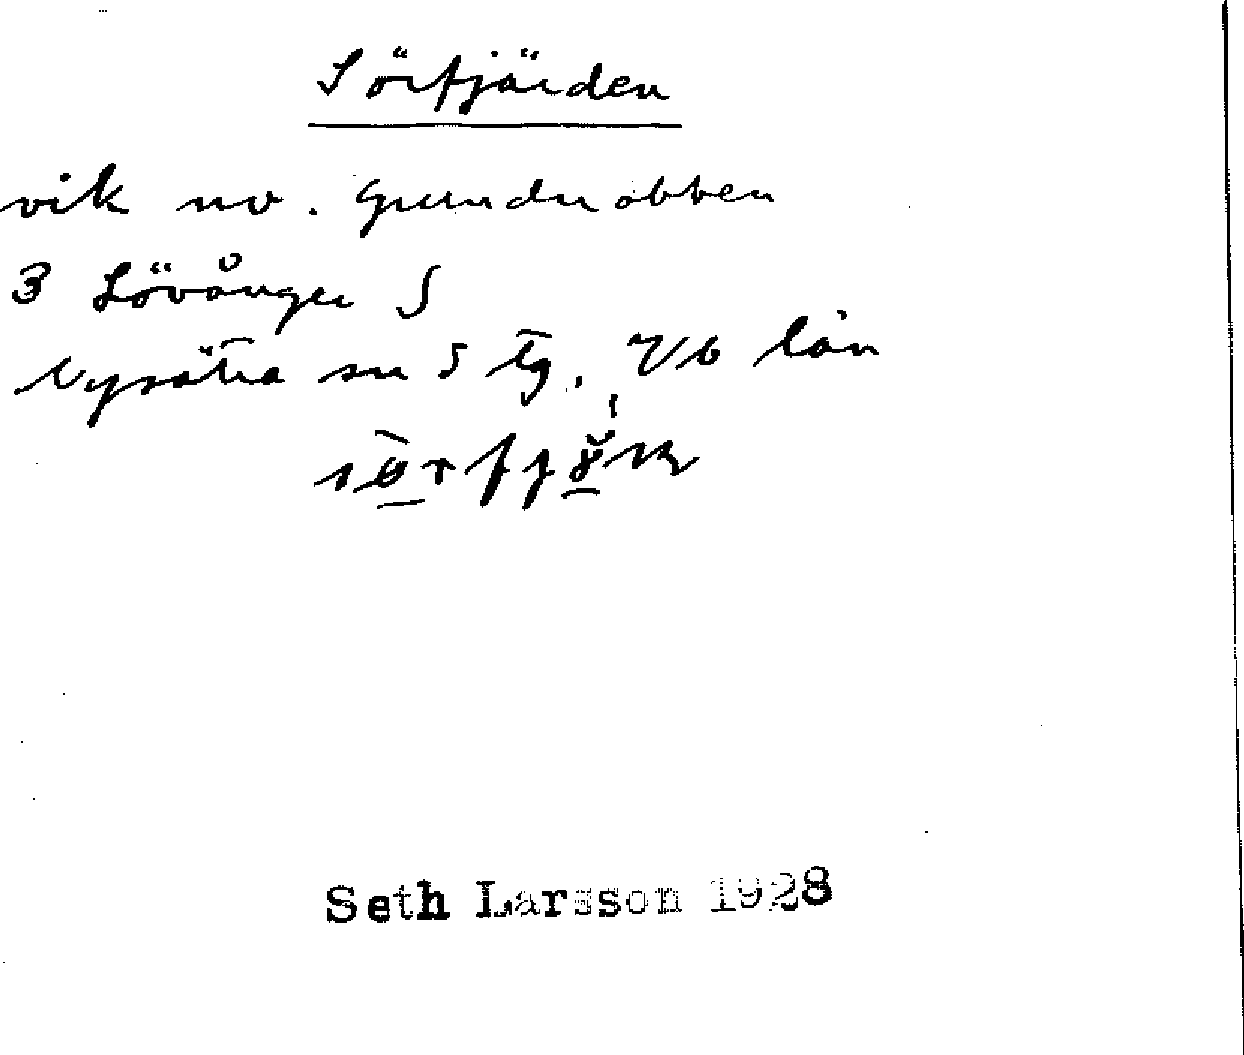 Sörfjärden
vik nv. Grundnabben
3 Lövånger S
Nysätra sn S tg. Vb län
Seth Larsson 1928